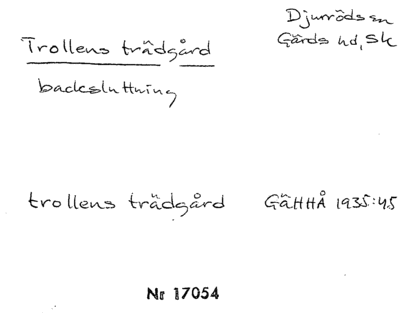 Djurröds sn
Trollens trädgård Gärds hd, Sk
backsluttning
trollens trädgård GäHHÅ 1935:45
Nr 17054